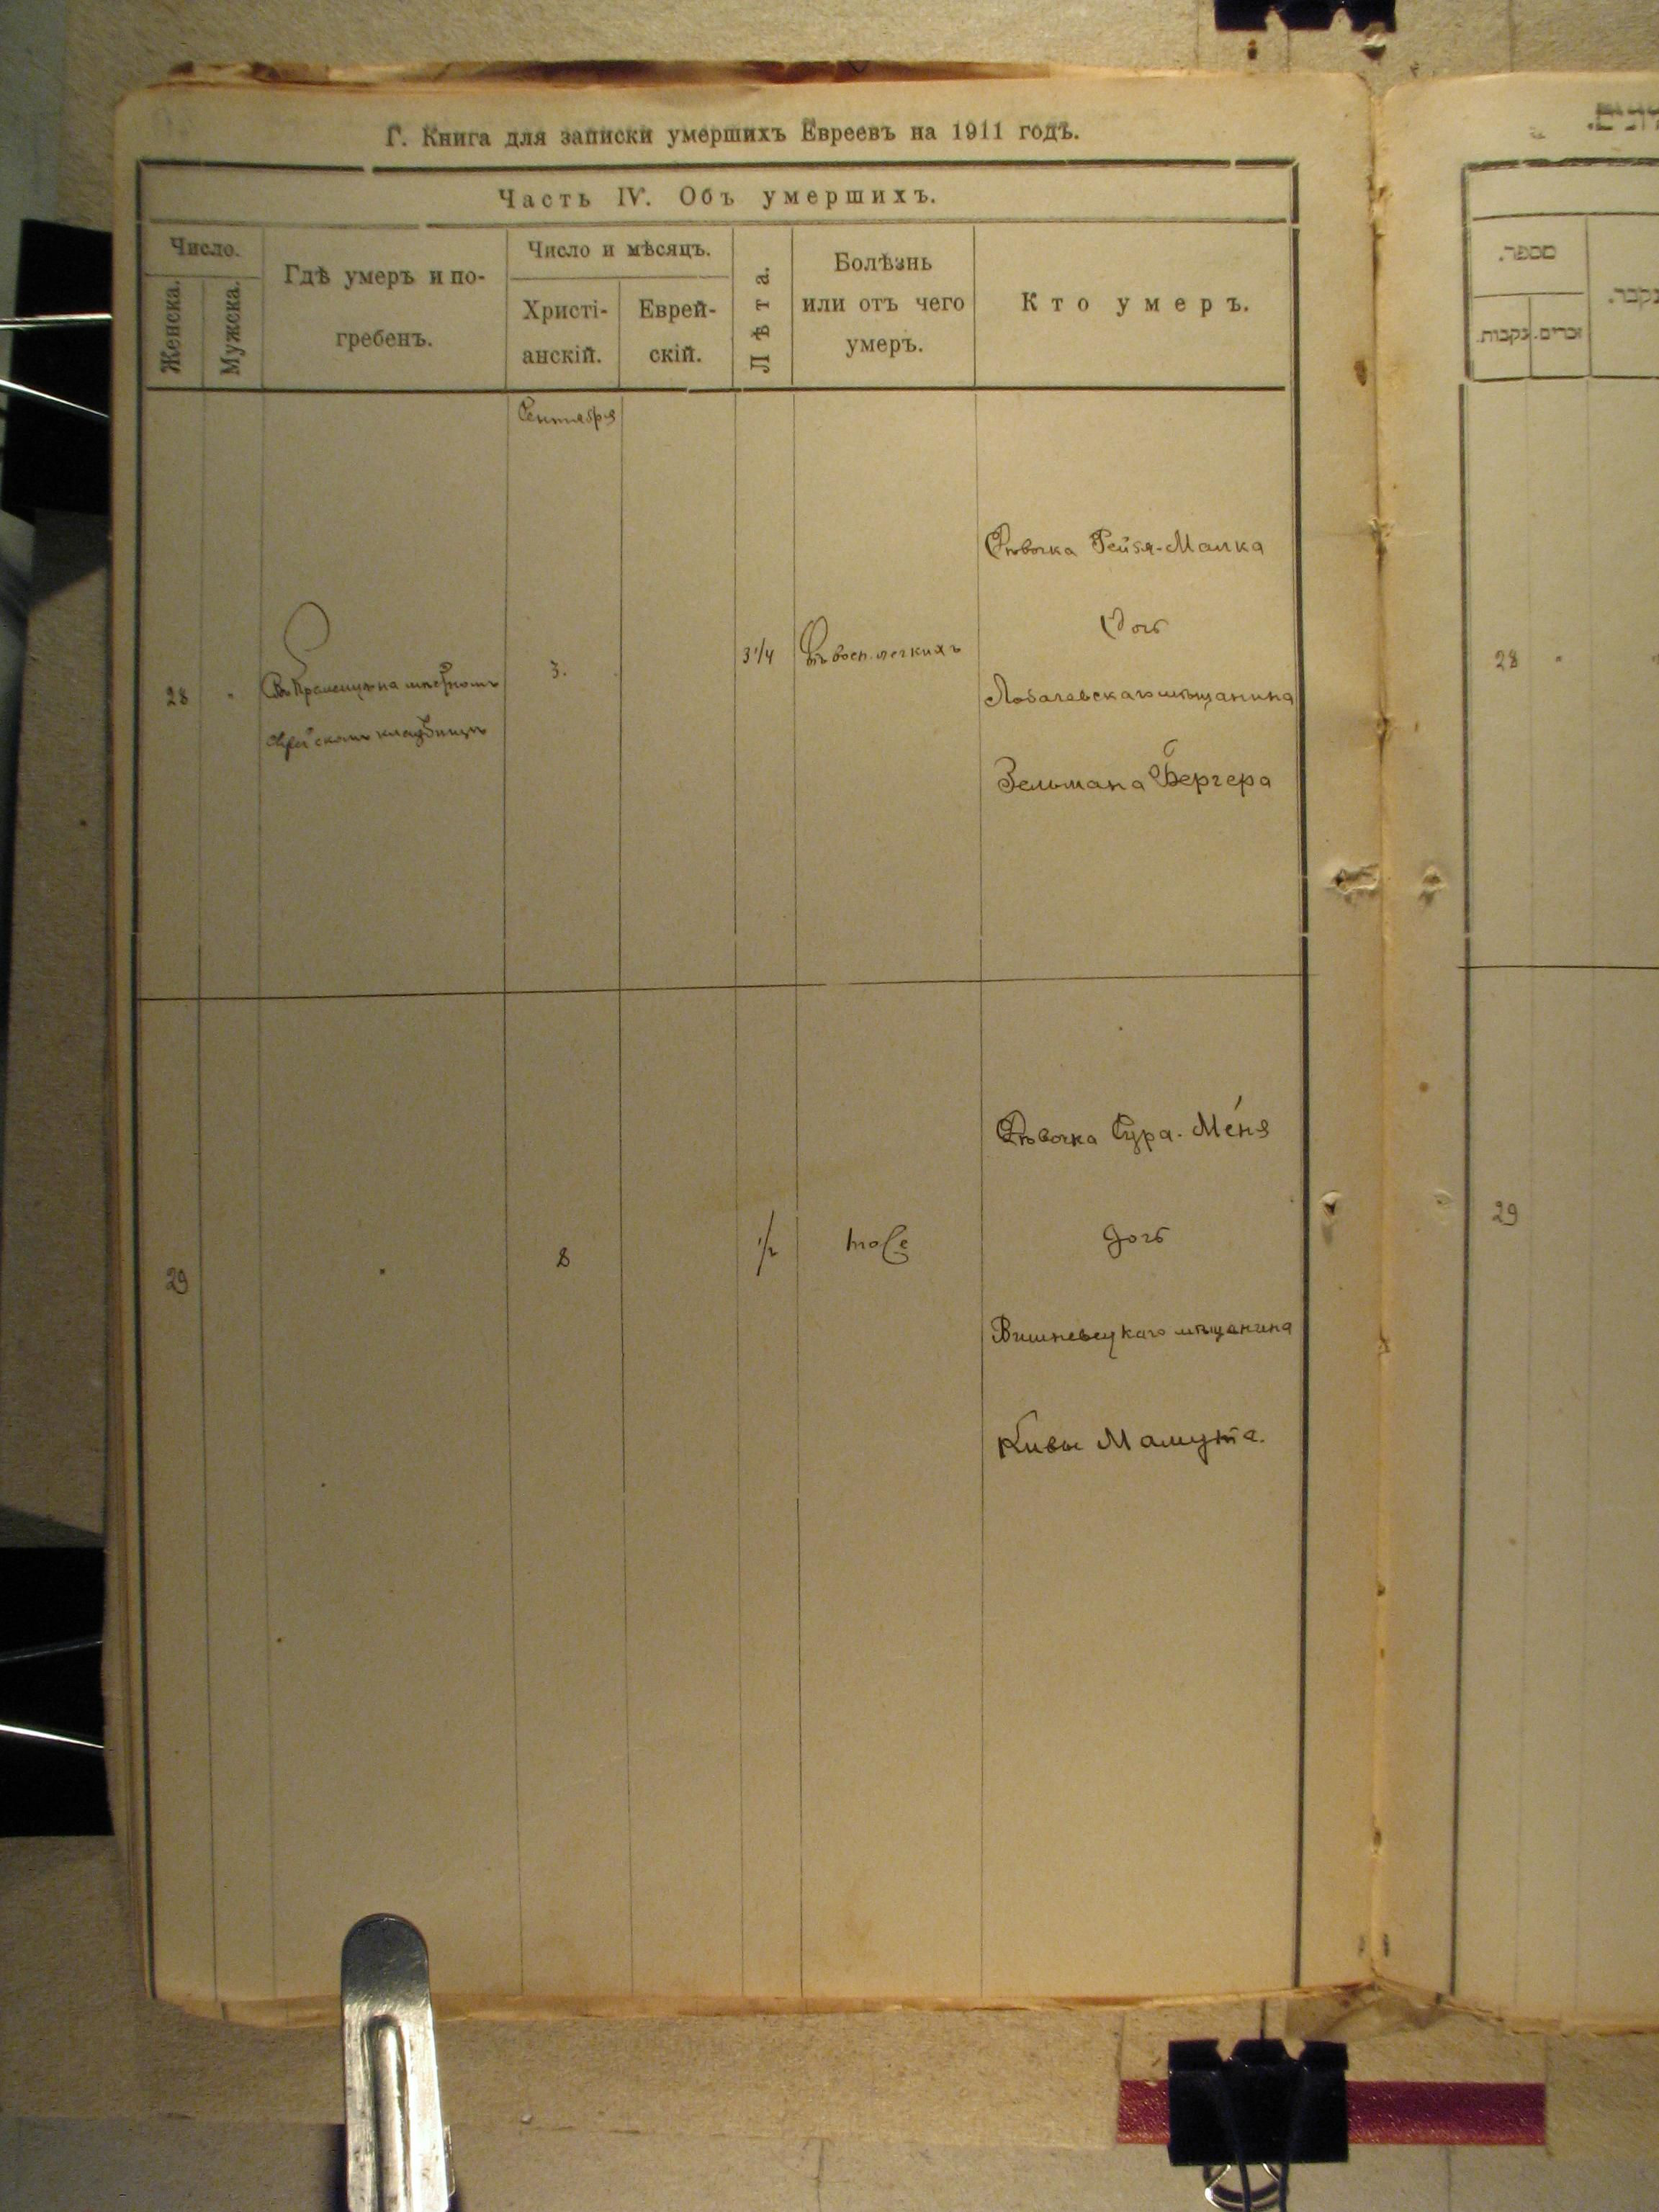 Г. Книга для записки умершихъ Евреевъ на 1911 годъ.
Часть IV. Объ умершихъ.
Число.
Женска.
Мужска.
Гдѣ умеръ и по-
гребенъ.
Число и мѣсяцъ.
Христі-
анскій.
Еврей-
скій.
Лѣта.
Болѣзнь
или отъ чего
умеръ.
Кто умеръ.
Сентября
28
"
Въ Кременцѣ на мѣстномъ
еврейскомъ кладбищѣ
3.
3 1/4
Отъ восп. легкихъ
Дѣвочка Рейзя-Малка
Дочь
Лобачевскаго мѣщанина
Зельмана Бергера
29
"
8
1/2
тоже
Дѣвочка Сура-Меня
дочь
Вишневецкаго мѣщанина
Кивы Мамута.
מספר.
זכרים.
נקבות.
28
"
29